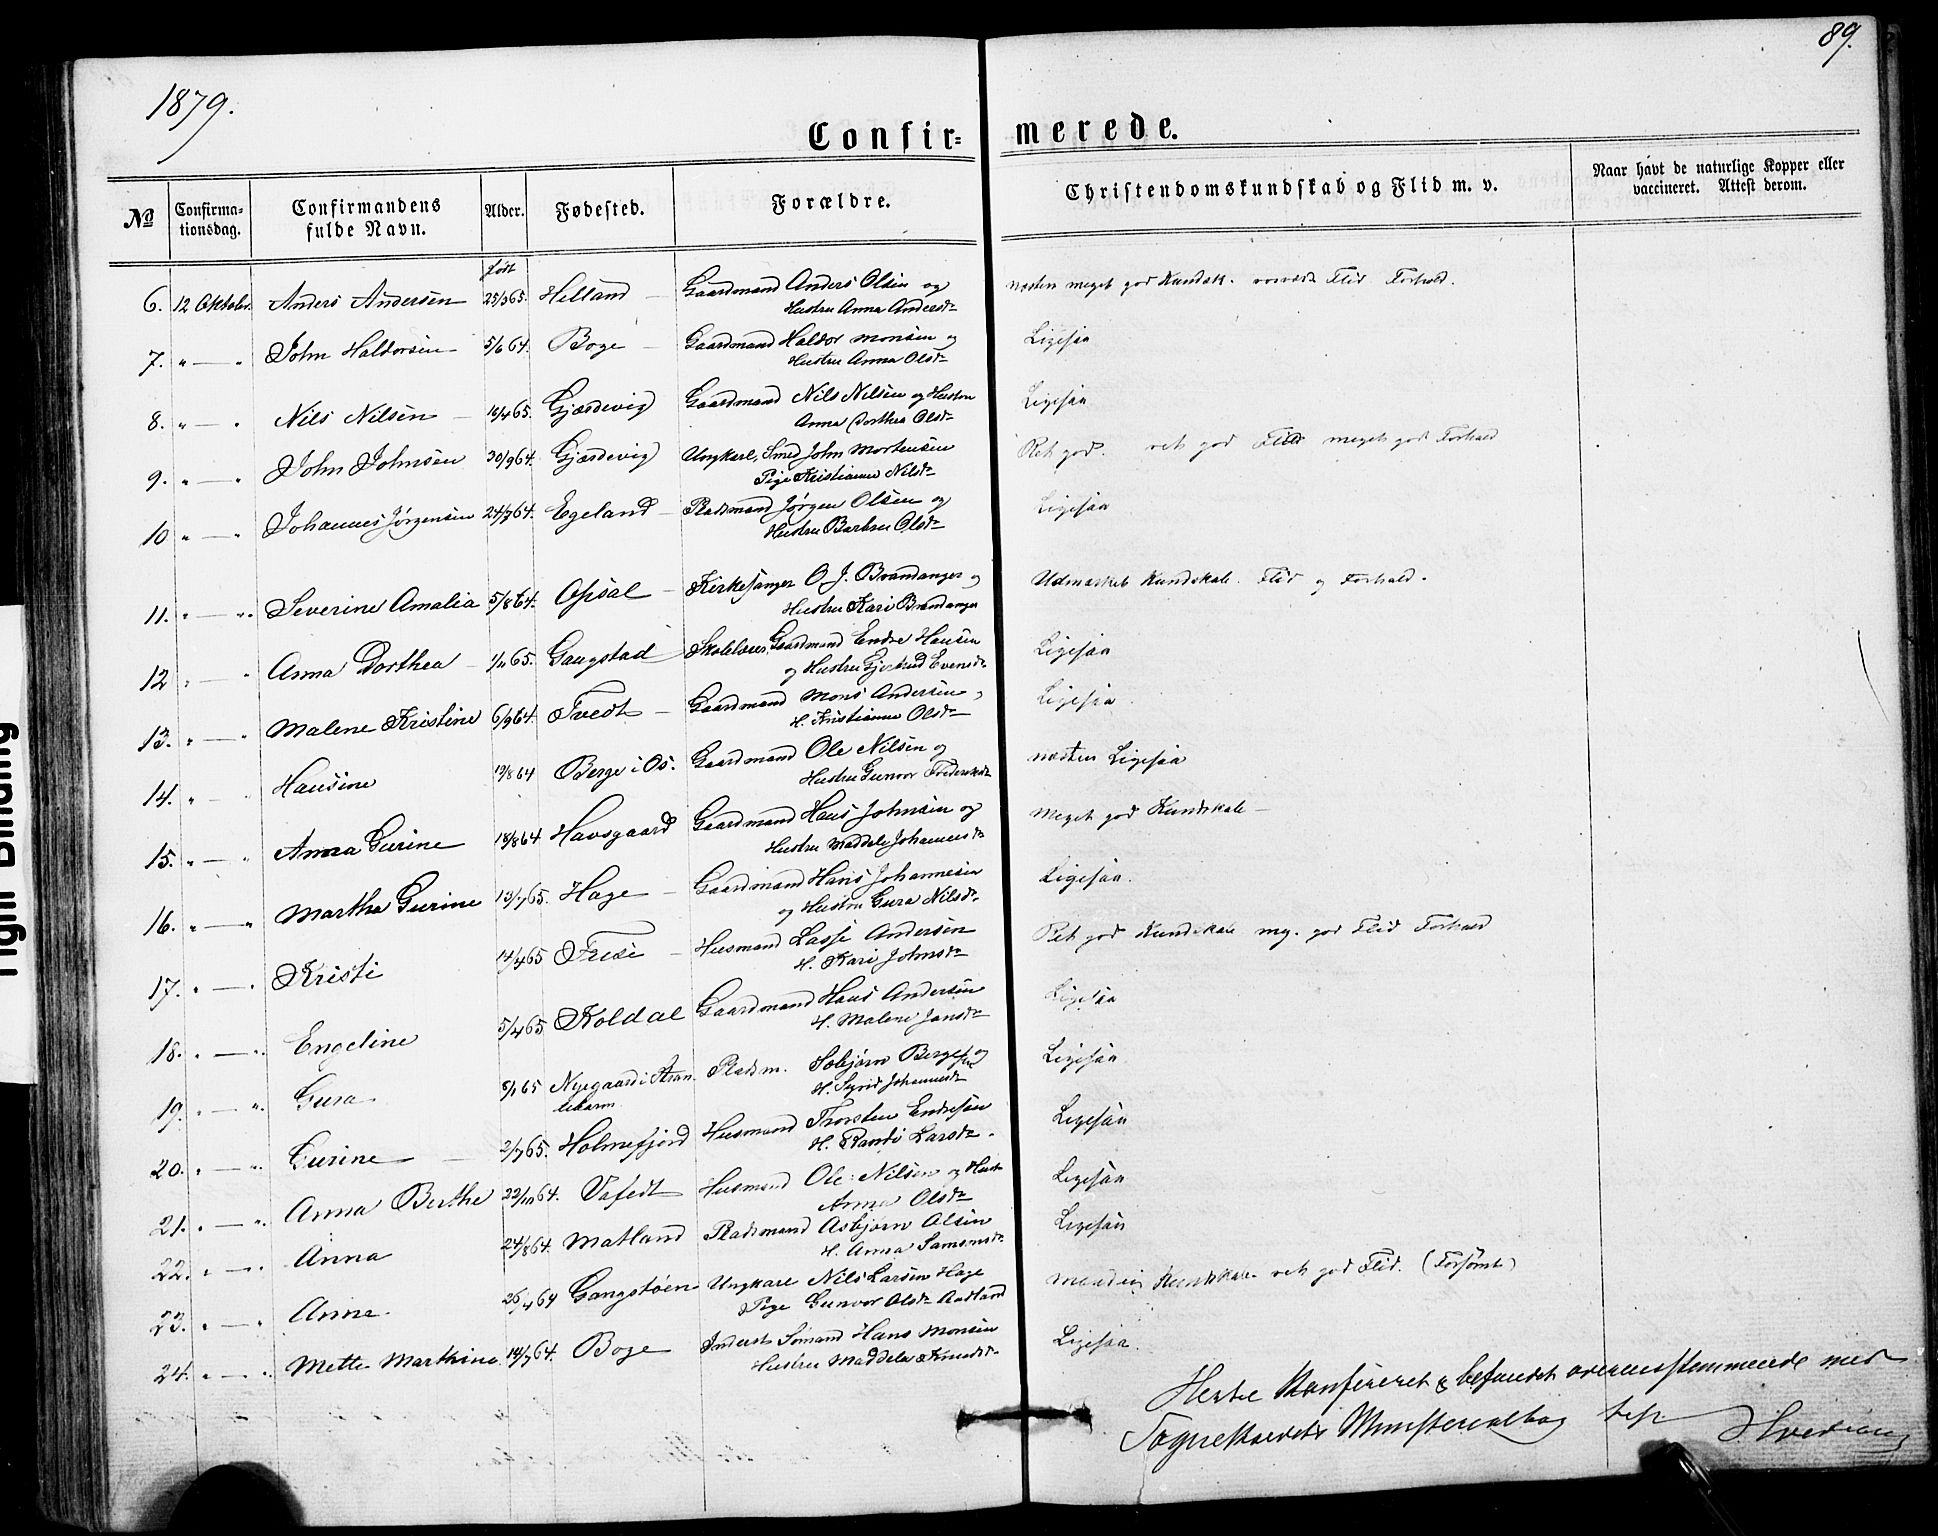 89.
1879.
Confir= merede.
No Confirma-tionsdag. Confirmandens fulde Navn. Alder. Fødested. Forældre. Christendomskundskab og Flid m. v. Naar havt de naturlige Kopper eller vaccineret. Attest derom.
født
6. 12 Oktober. Anders Andersen 25/3 65. Helland — Gaardmand Anders Olsen og næsten meget god Kundsk. Flid Forhold.
Hustru Anna Andersdr
7. " — " John Haldorsen 5/6 64. Boge — Gaardmand Haldor Monsen og Ligesaa
Hustru Anna Olsdr
8. " — " Nils Nilsen — 18/4 65. Gjærdevig Gaardmand Nils Nilsen og Hustru Ligesaa
Anna Dorthea Olsdr
9. " — " John Johnsen 30/9 64. Gjærdevig Ungkarl, Smed John Mortensen Ret god. ret god Flid meget god Forhold
Pige Kristianne Nilsdr
10 " — " Johannes Jørgensen 24/7 64. Egeland — Pladsmand Jørgen Olsen og Ligesaa
Hustru Barbra Olsdr
11. " — " Severine Amalia 5/8 64. Opsal — Kirkesanger O. J. Brandanger og Udmærket Kundskab. Flid og Forhold.
Hustru Kari Brandanger
12 " — " Anna Dorthea — 1/1 65. Gangstad Skolelærer, Gaardmand Endre Hansen Ligesaa
og Hustru Gjertrud Evensdr
13. " — " Malene Kristine 6/9 64. Tvedt — Gaardmand Mons Andersen, Ligesaa.
H. Kristianne Olsdr
14. " — " Hansine 19/8 64 Berge i Os. Gaardmand Ole Nilsen og næsten Ligesaa
Hustru Gunvor
15. " — " Anna Gurine 18/8 64 Havsgaard Gaardmand Hans Johnsen og Meget god Kundskab —
Hustru Maddele Johannesdr
16. " — " Martha Gurine 13/7 65. Hage — Gaardmand Hans Johannesen Ligesaa.
og Hustru Gura Nilsdr
17. " — " Kristi 14/4 65 — Husmand Lasse Andersen Ret god Kundskab mg. god Flid Forhold
H. Kari Johnsdr
18. " — " Engeline 5/4 65 Koldal Gaardmand Hans Andersen Ligesaa
H. Malene Jansdr
19. " — " Gura 8/1 65 Nygaard i Pladsm. Bergesen og Ligesaa.
H. Sigrid Johannesdr
20. " — " Gurine — 2/7 65. Holmefjord Husmand Thorsten Endresen Ligesaa
H. Randi Larsdr.
21. " — " Anna Berthe 22/10 64. Husmand Ole Nilsen og Hustr Ligesaa
Anna Olsdr
22. " — " Anna 24/8 64. Matland Pladsmand Asbjørn Olsen Ligesaa
H. Anna Samsonsdr
23. " — " Anne 26/4 64 Gangstøen Ungkarl Nils Larsen Hage Kundskab ret god Flid. (Forsømt)
Pige Gunvor Olsdr Aadland
24. " — " Mette Marthine 14/7 64. Boge Inderst Sømand Hans Monsen Ligesaa.
Hustru Maddela Knudsdr
Herte Konfereret & befundet overensstemmende med
Sognekaldets Ministerialbog